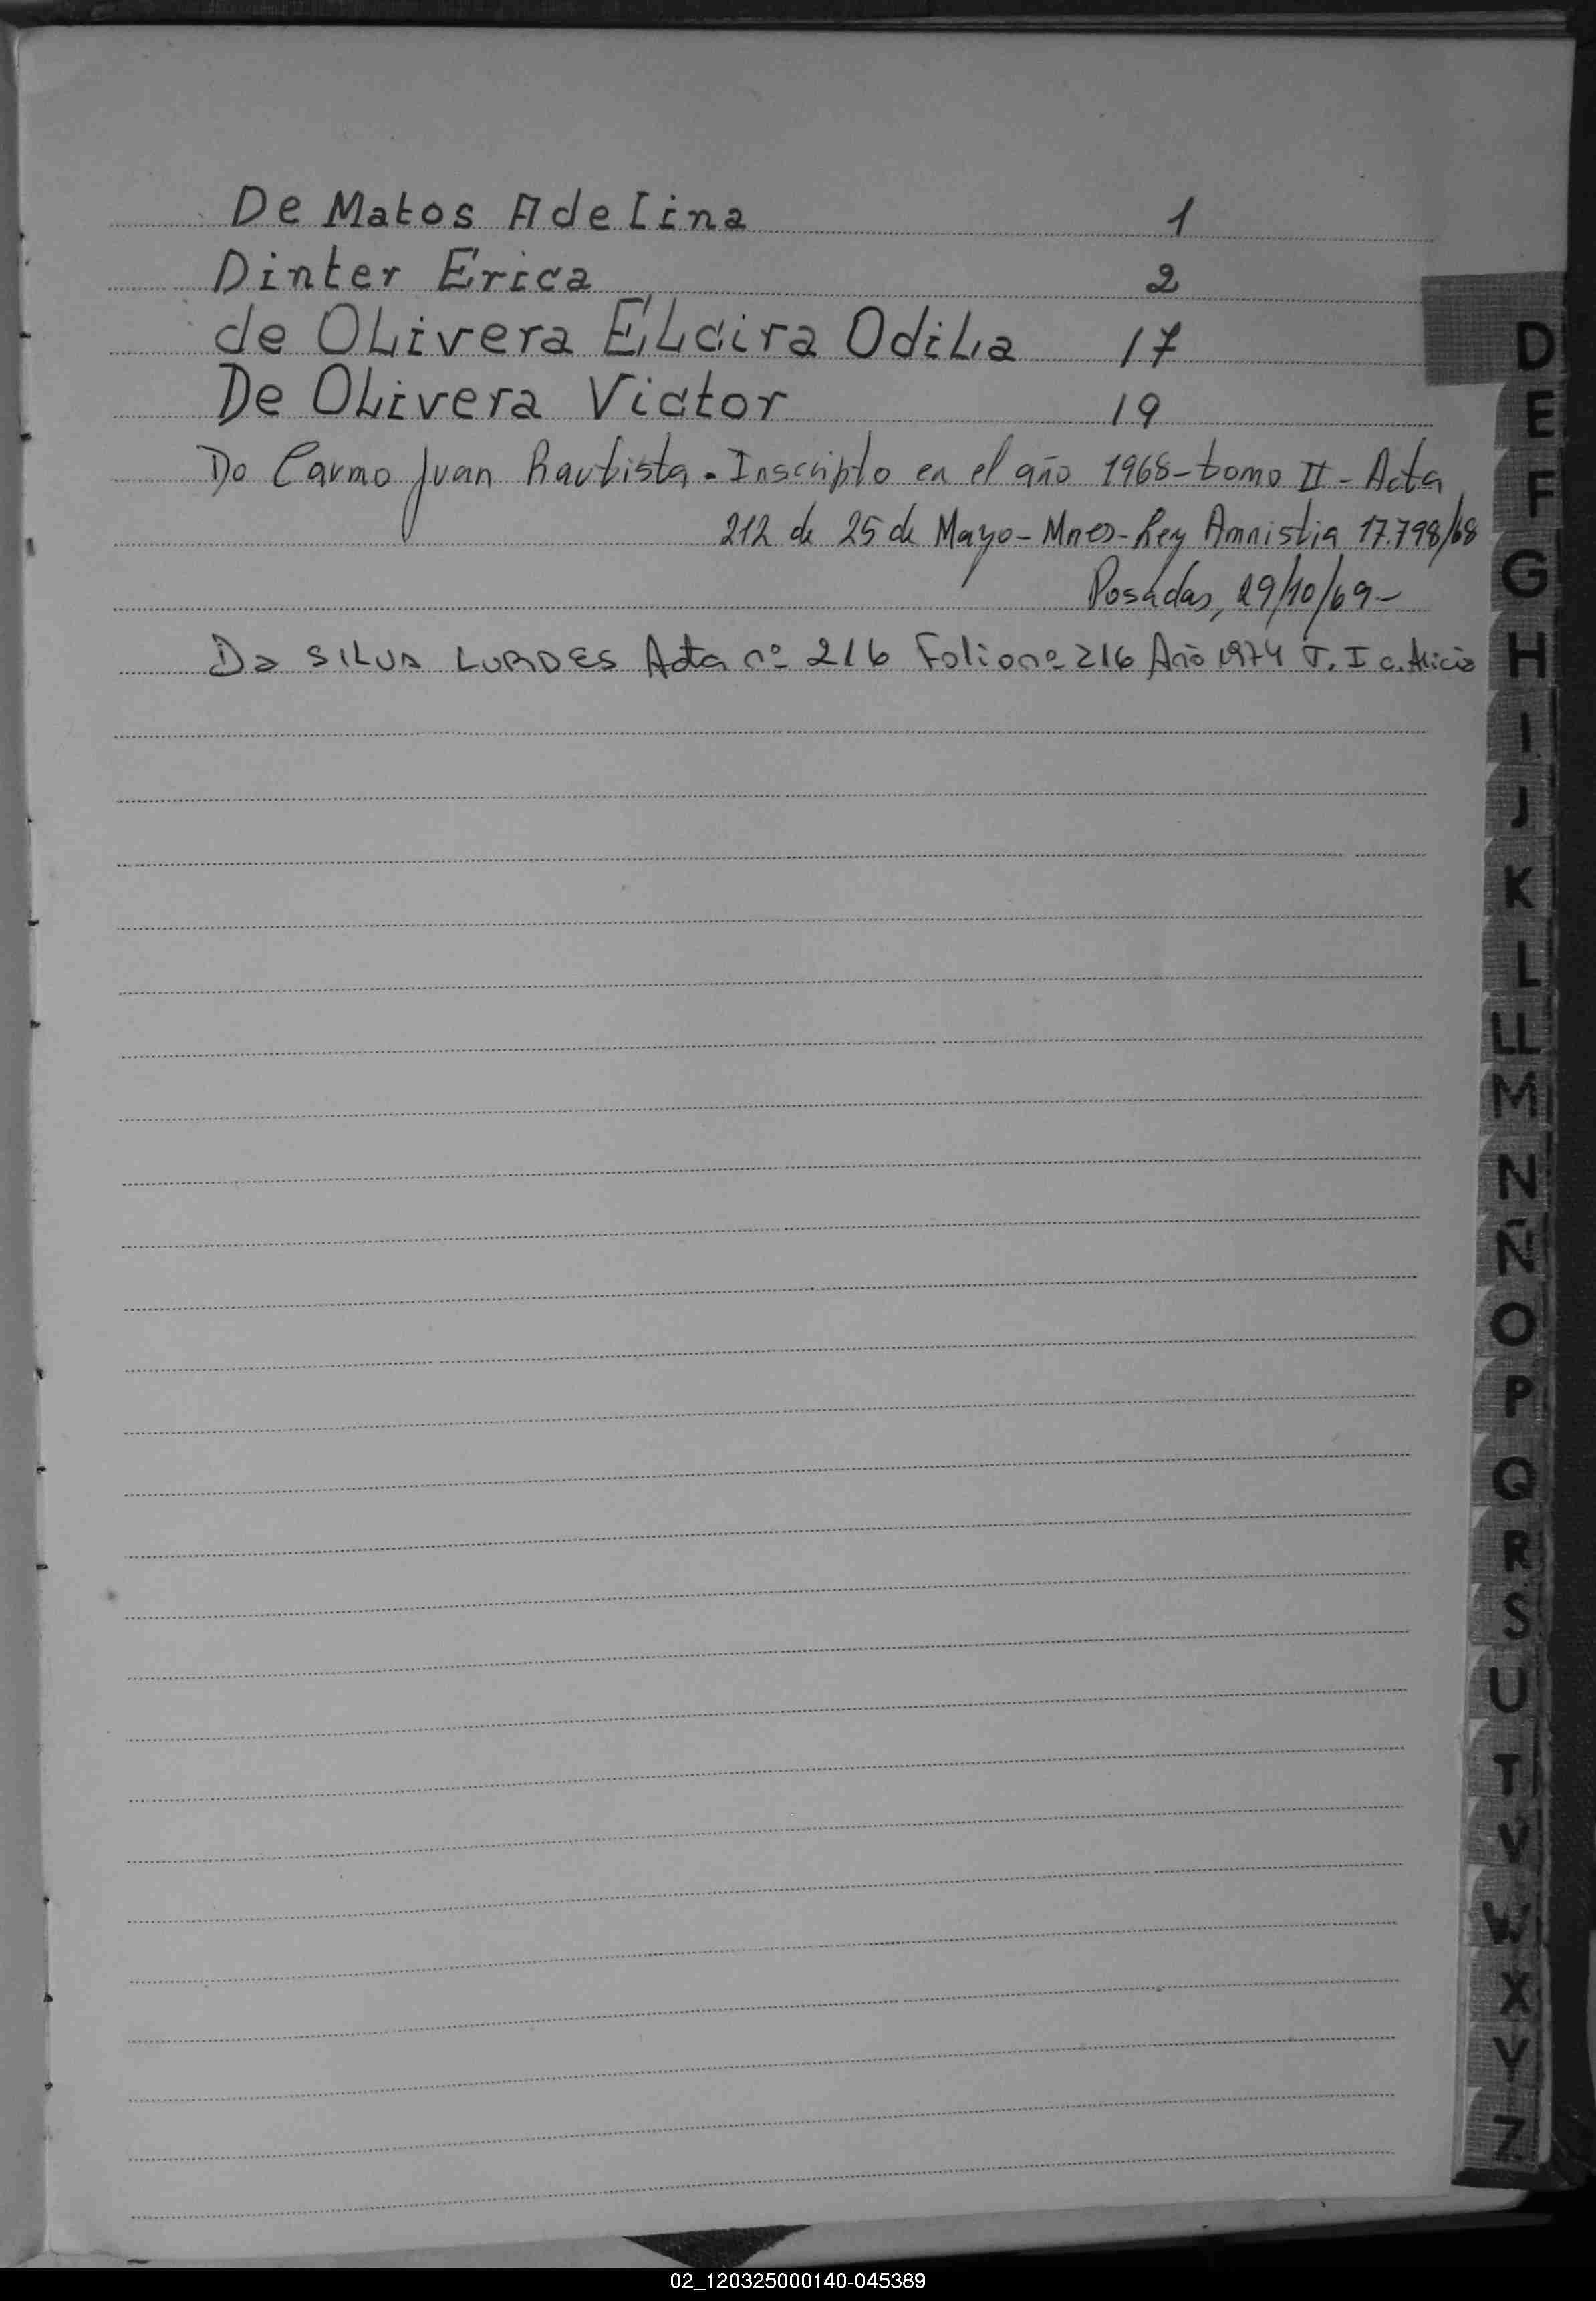 De Matos Adelina 1
Dinter Erica 2
de Olivera Elcira Odilia 17
De Olivera Victor 19
Do Carmo Juan Bautista - Inscripto en el año 1968 - tomo II - Acta
212 de 25 de Mayo - Mnes - Ley Amnistia 17.798/68
Posadas, 29/10/69 -
Da SILVA LURDES Acta nº 216 Folio nº 216 Año 1974 T. I c. Alicia
D
E
F
G
H
I
J
K
L
LL
M
N
Ñ
O
P
Q
R
S
U
T
V
W
X
Y
Z
02_120325000140-045389